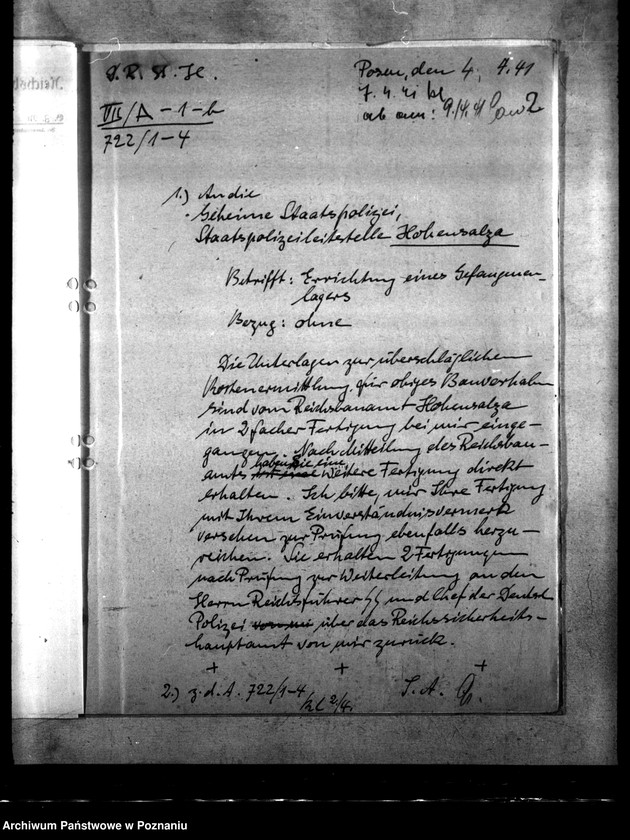 D. R. St. H.
Posen, den 4. 4. 41
7. 4. 41 kl
VII/A-1-b
ab am: 9./4. 41
722/1-4
1.) An die
Geheime Staatspolizei,
Staatspolizeileitstelle Hohensalza
Betrifft: Errichtung eines Gefangenen-
lagers
Bezug: ohne
Die Unterlagen zur überschläglichen
Kostenermittlung für obiges Bauvorhaben
sind vom Reichsbauamt Hohensalza
in 2 facher Fertigung bei mir einge-
gangen. Nach Mitteilung des Reichsbau-
haben Sie eine
amts weitere Fertigung direkt
erhalten. Ich bitte, mir Ihre Fertigung
mit Ihrem Einverständnisvermerk
versehen zur Prüfung ebenfalls herzu-
reichen. Sie erhalten 2 Fertigungen
nach Prüfung zur Weiterleitung an den
Herrn Reichsführer SS und Chef der Deutsch.
Polizei über das Reichssicherheits-
hauptamt von mir zurück.
+ + +
2.) z. d. A. 722/1-4
I. A.
kl 2/4.
Archiwum Państwowe w Poznaniu